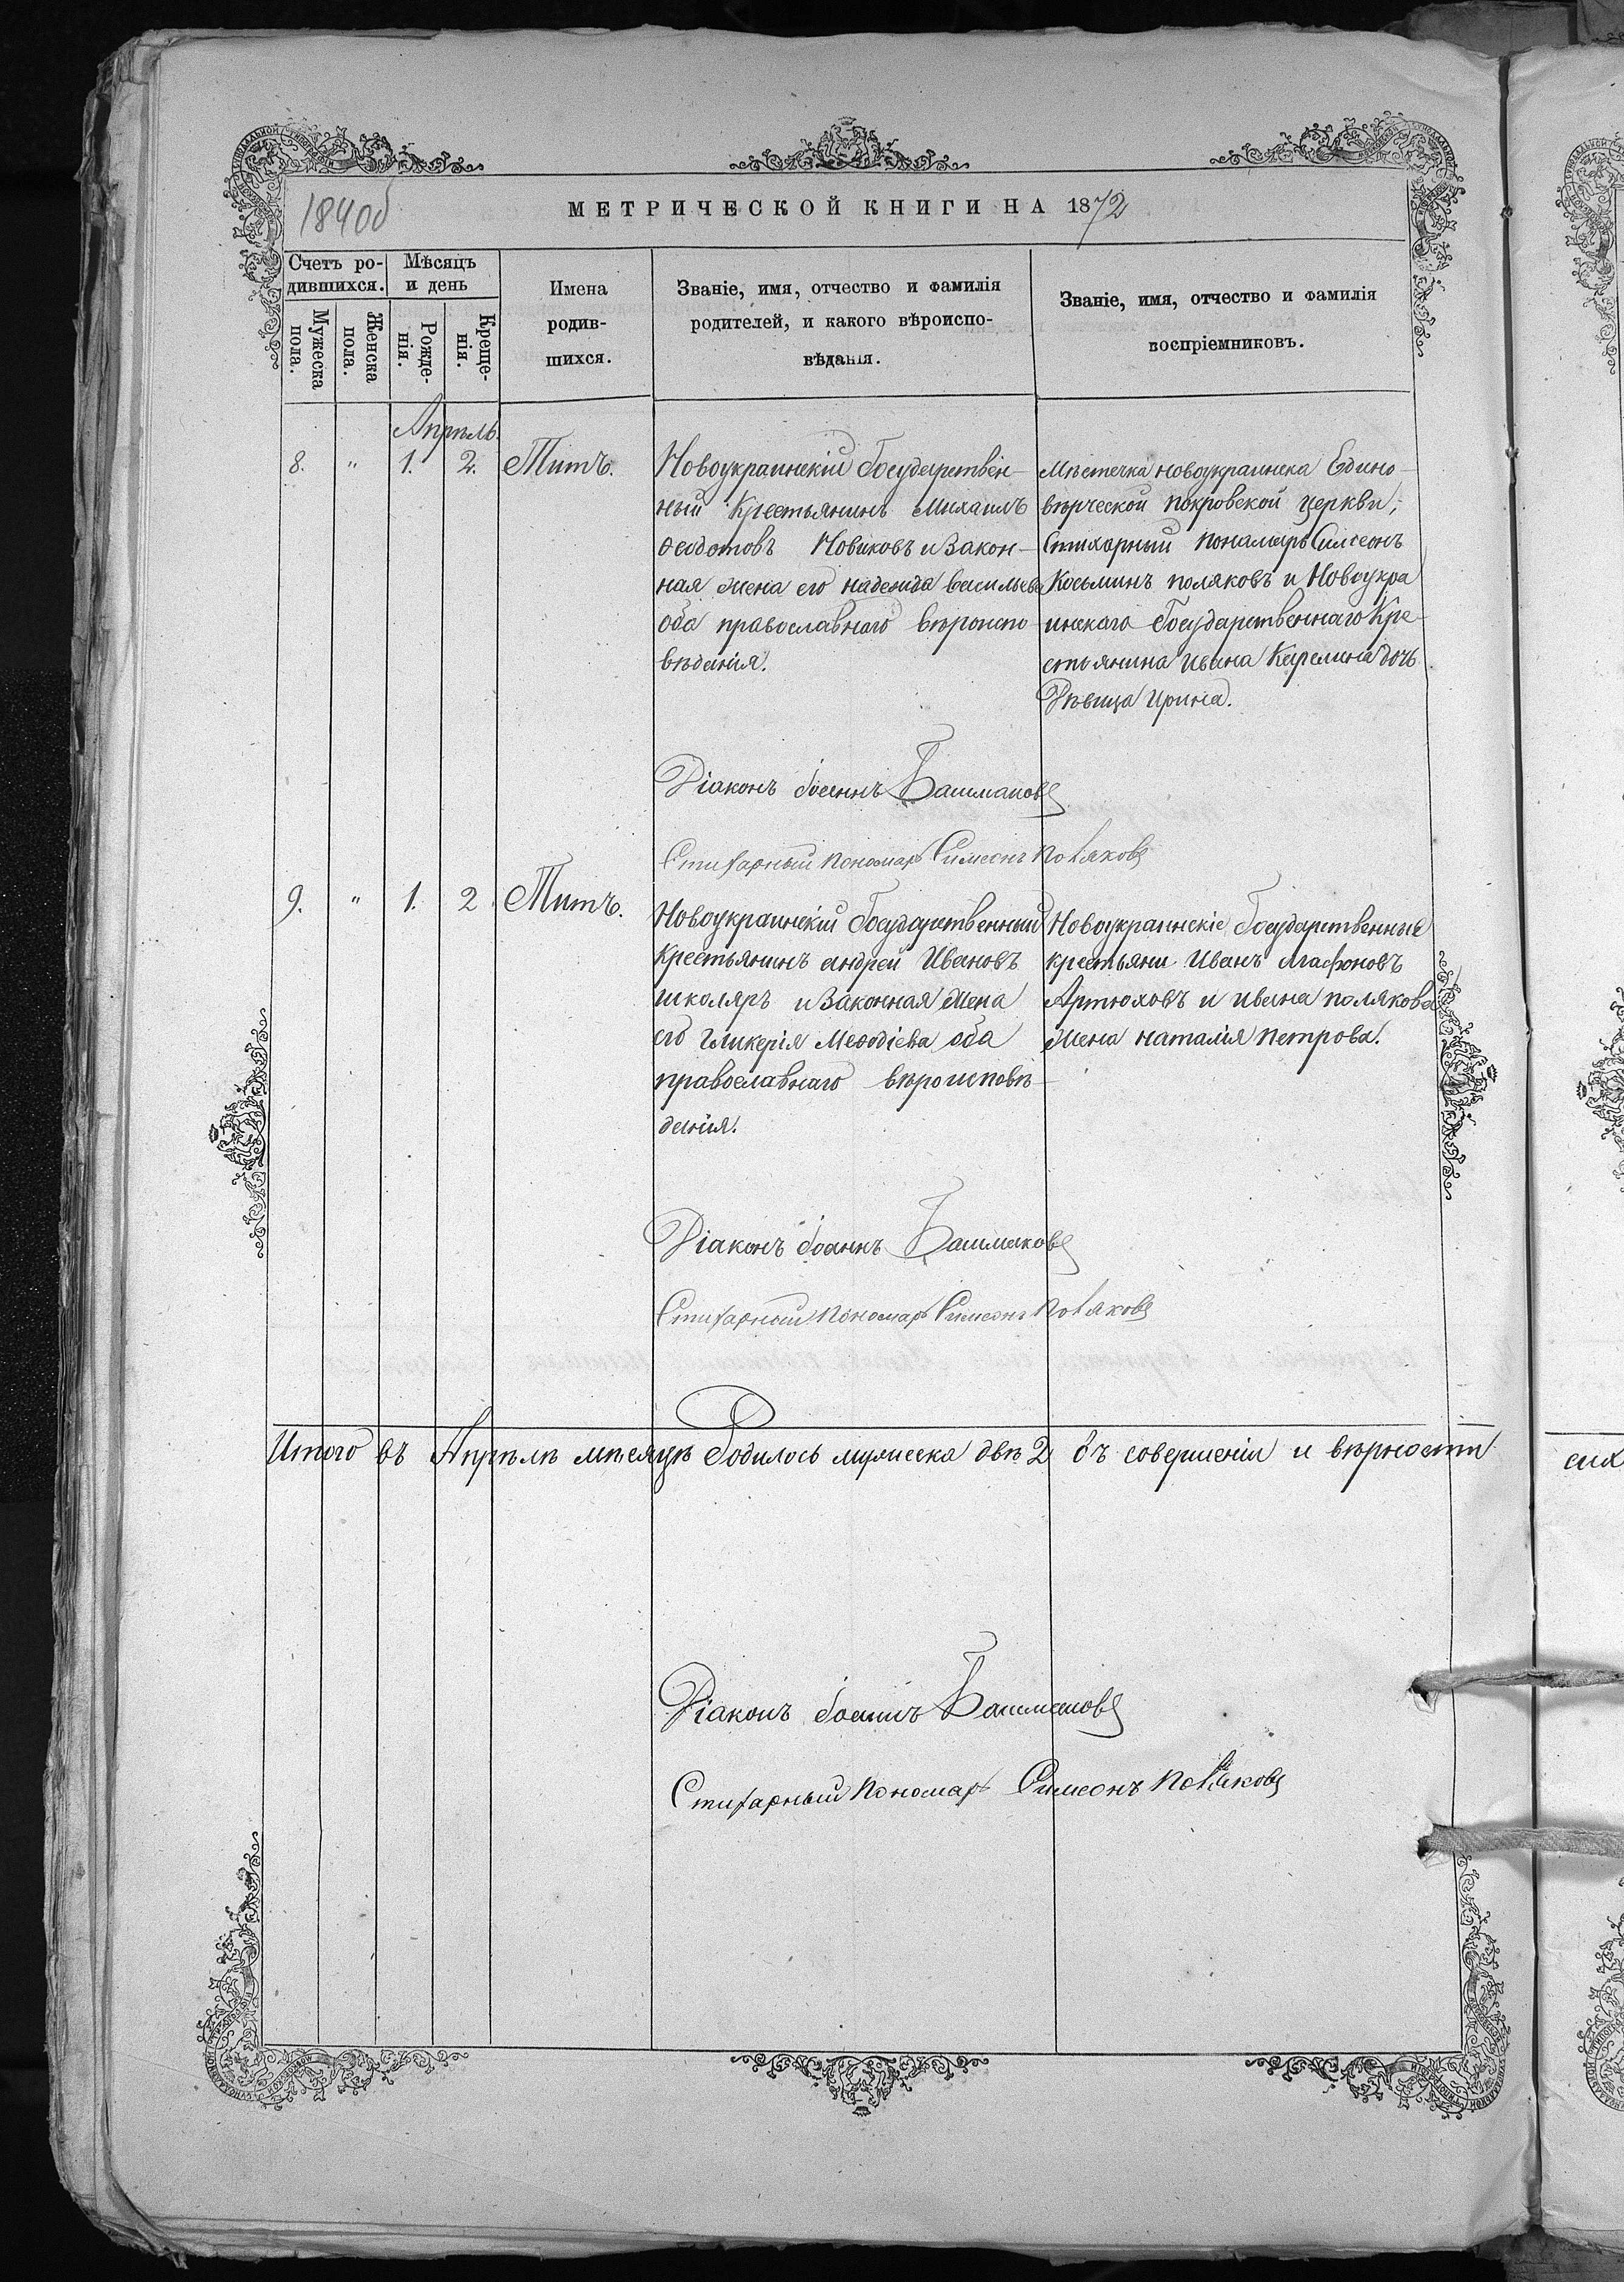 1840об
МЕТРИЧЕСКОЙ КНИГИ НА 1872
Счетъ ро-
дившихся.
Мѣсяцъ
и день
Мужеска
пола.
Женска
пола.
Рожде-
нія.
Креще-
нія.
Имена
родив-
шихся.
Званіе, имя, отчество и фамилія
родителей, и какого вѣроиспо-
вѣданія.
Званіе, имя, отчество и фамилія
воспріемниковъ.
Апрѣль.
8. " 1. 2. Титъ.
Новоукраинскій Государствен-
ный Крестьянинъ Михаилъ
Ѳедотовъ Новиковъ и Закон-
ная жена его надежда васильева
оба православнаго вѣроиспо-
вѣданія.
Мѣстечка новоукраинска Едино-
вѣрческой покровской церкви,
Стихарный пономарь Симеонъ
Косьминъ поляковъ и Новоукра
инскаго Государственнаго Кре-
стьянина Ивана Карелина дочь
Дѣвица Ирина.
Діаконъ Іоаннъ Башмаковъ
Стихарный пономарь Симеонъ Поляковъ
9. " 1. 2 Титъ.
Новоукраинскій Государственный
Крестьянинъ андрей Ивановъ
школяръ и Законная Жена
его гликерія Меѳодіева оба
православнаго вѣроисповѣ-
данія.
Новоукраинскіе Государственные
крестьяни Иванъ Агафоновъ
Артюховъ и ивана полякова
Жена наталія петрова.
Діаконъ Іоаннъ Башмаковъ
Стихарный Пономарь Симеонъ Поляковъ
Итого въ Апрѣлѣ мѣсяцѣ Родилось мужеска двѣ 2 въ совершеніи и вѣрности
сих
Діаконъ Іоаннъ Башмаковъ
Стихарный Пономарь Симеонъ Поляковъ